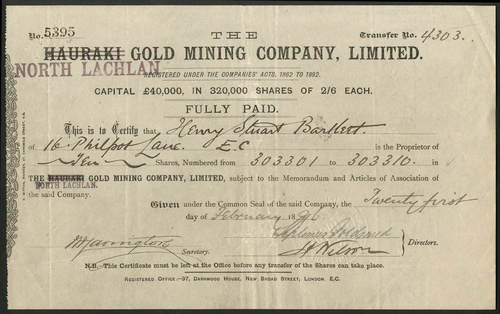 No. 5395 THE Transfer No. 4303.
HAURAKI GOLD MINING COMPANY, LIMITED.
NORTH LACHLAN
REGISTERED UNDER THE COMPANIES' ACTS, 1862 TO 1892.
CAPITAL £40,000, IN 320,000 SHARES OF 2/6 EACH.
FULLY PAID.
This is to Certify that Henry Stuart Bartlett.
of 16. Philpot Lane. E.C is the Proprietor of
Ten Shares, Numbered from 303301 to 303310. in
THE HAURAKI GOLD MINING COMPANY, LIMITED, subject to the Memorandum and Articles of Association of
NORTH LACHLAN.
the said Company.
Given under the Common Seal of the said Company, the Twenty first
day of February 1896
Secretary.
H Wilson
Directors.
N.B. This Certificate must be left at the Office before any transfer of the Shares can take place.
REGISTERED OFFICE:—97, DASHWOOD HOUSE, NEW BROAD STREET, LONDON. E.C.